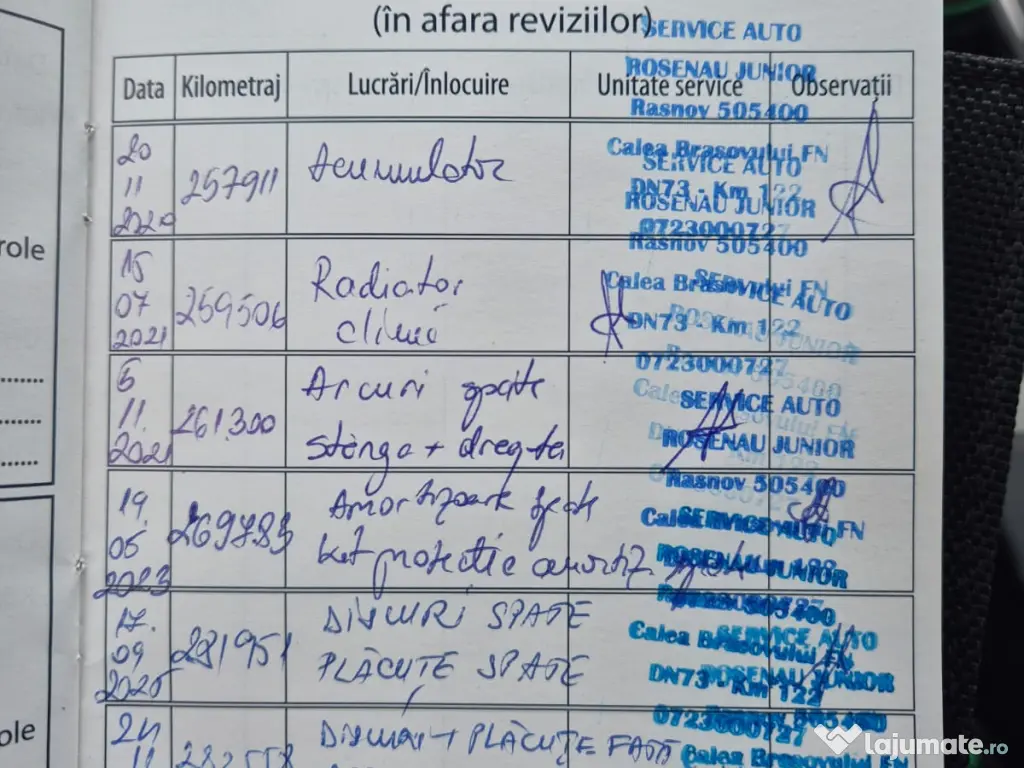 (în afara reviziilor)
SERVICE AUTO
Data Kilometraj Lucrări/Înlocuire Unitate service Observații
ROSENAU JUNIOR
Rasnov 505400
20
11
2020
257911
Acumulator
Calea Brasovului FN
SERVICE AUTO
DN73 - Km 122
ROSENAU JUNIOR
0723000727
Rasnov 505400
role
15
07
2021
259506
Radiator
climă
Calea Brasovului FN
SERVICE AUTO
DN73 - Km 122
ROSENAU JUNIOR
0723000727
6
11.
2021
261300
Arcuri spate
stânga + dreapta
SERVICE AUTO
ROSENAU JUNIOR
Rasnov 505400
19.
05
2023
269783
Amortizoare spate
kit protectie amortiz.
SERVICE AUTO
FN
ROSENAU JUNIOR
17.
09
2025
281951
DISCURI SPATE
PLĂCUȚE SPATE
SERVICE AUTO
Calea Brasovului FN
ROSENAU JUNIOR
DN73 - Km 122
0723000727
ole
11
DISCURI + PLĂCUȚE FAȚĂ
Calea Brasovului FN
lajumate.ro